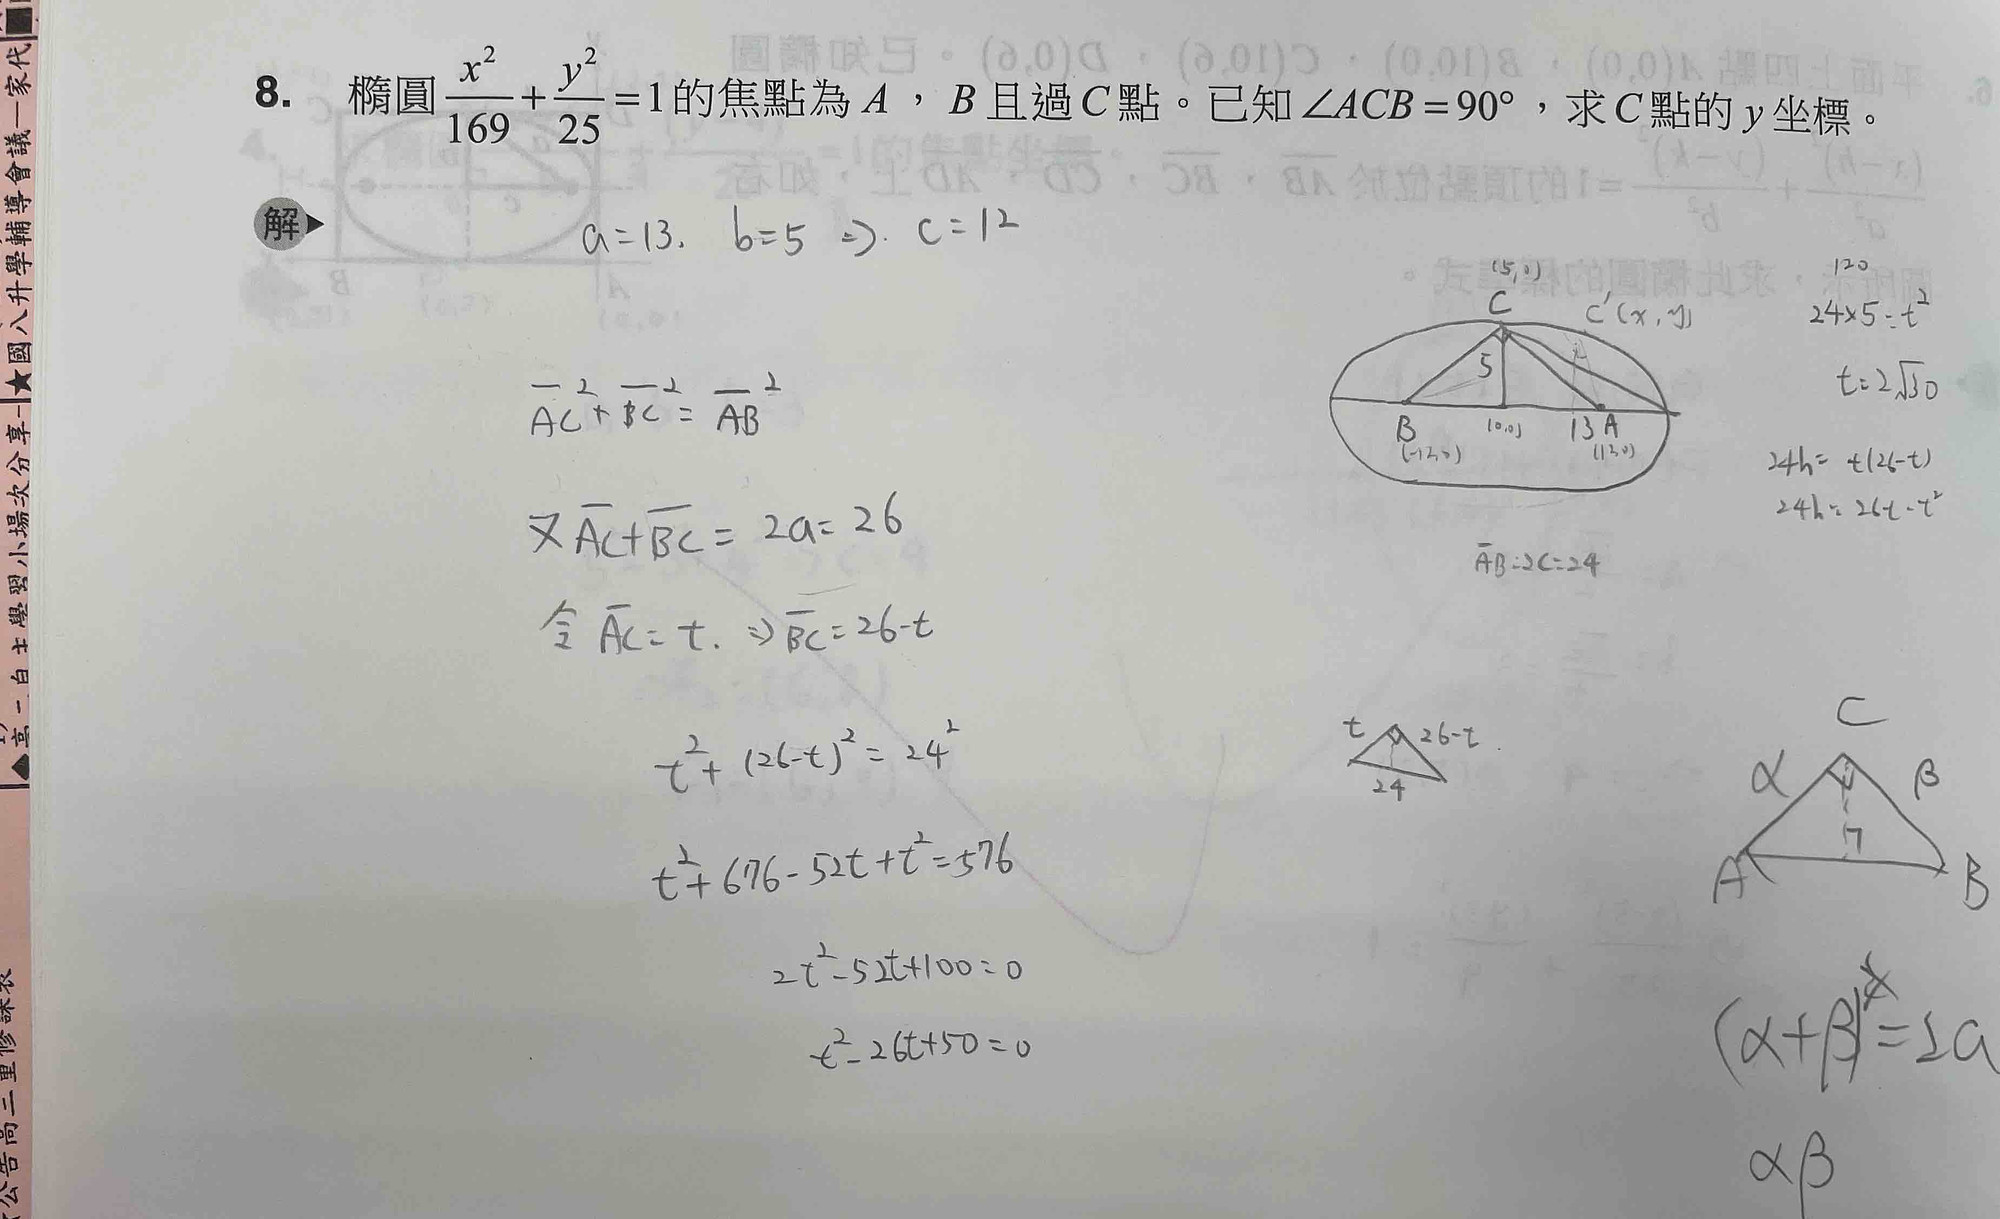 8. 橢圓 x²/169 + y²/25 = 1 的焦點為 A，B 且過 C 點。已知 ∠ACB = 90°，求 C 點的 y 坐標。
解
a=13, b=5 ⇒ c=12
AC² + BC² = AB²
又 AC + BC = 2a = 26
令 AC = t. ⇒ BC = 26-t
t² + (26-t)² = 24²
t² + 676 - 52t + t² = 576
2t² - 52t + 100 = 0
t² - 26t + 50 = 0
C
C'(x, y)
5
B
(0,0)
13 A
AB = 2c = 24
120
24×5 = t²
t = 2√30
24h = t(26-t)
24h = 26t - t²
t
26-t
24
C
α
β
A
B
(α+β) = 2a
αβ
★國八升學輔導會議—家代
高一自主學習小場次分享
公告高三重修課表